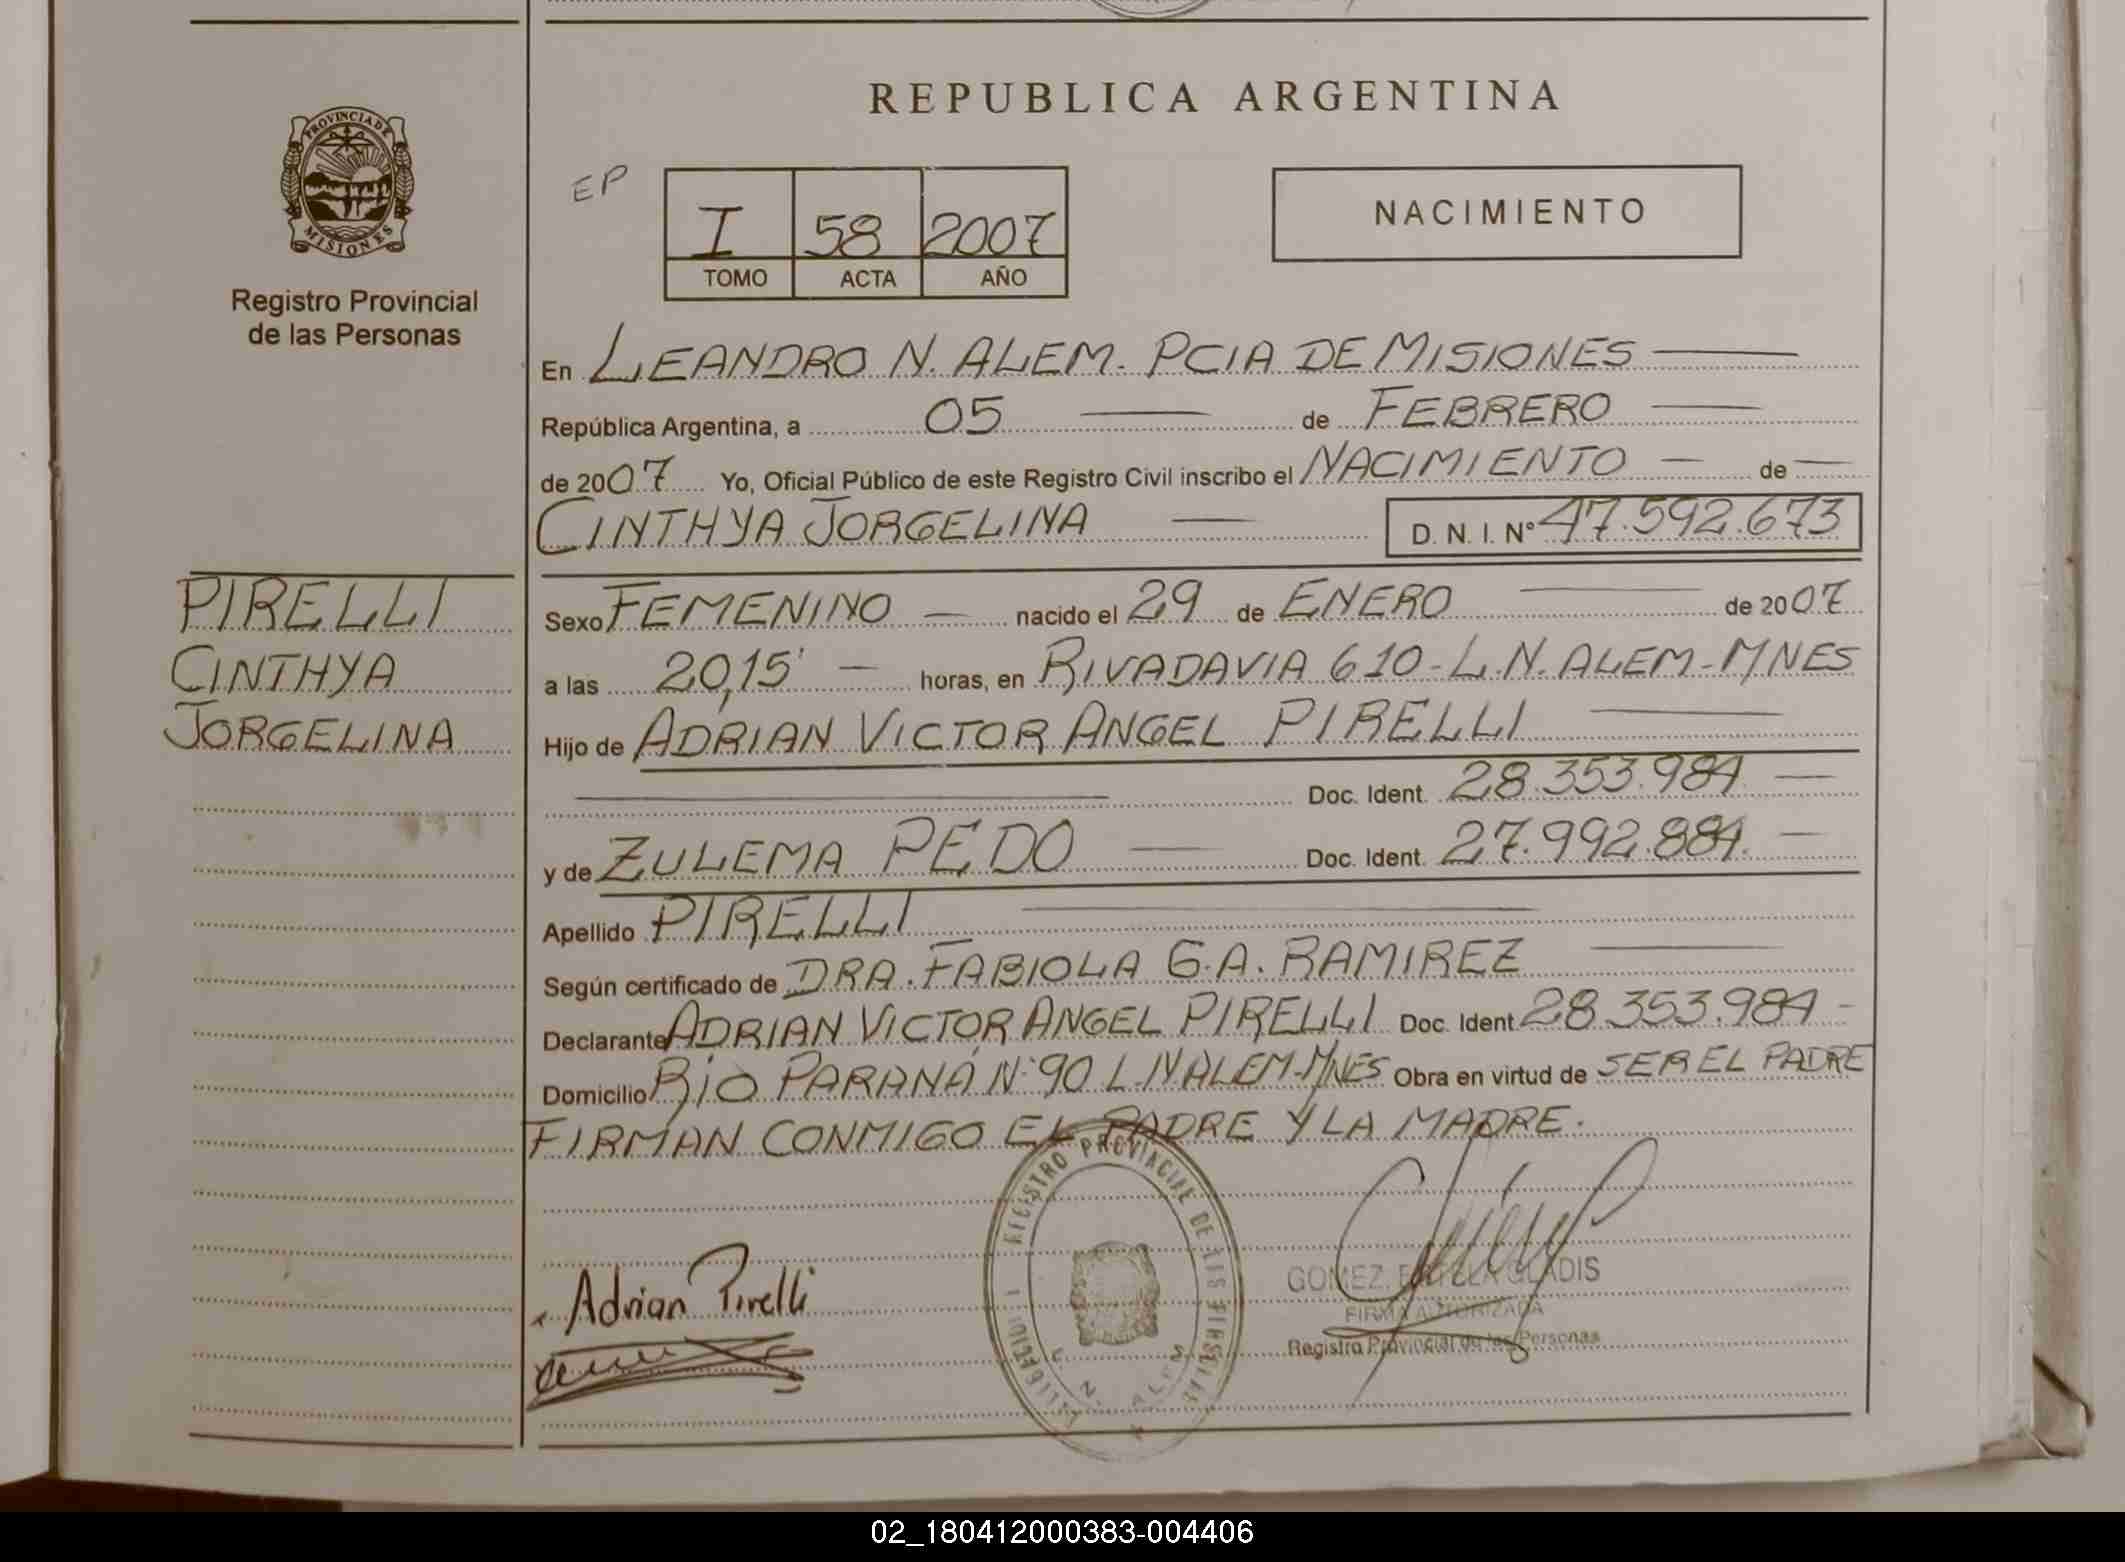 REPUBLICA ARGENTINA
PROVINCIA DE
MISIONES
Registro Provincial
de las Personas
EP
I 58 2007
TOMO ACTA AÑO
NACIMIENTO
En LEANDRO N. ALEM. PCIA DE MISIONES
República Argentina, a 05 de FEBRERO
de 2007 Yo, Oficial Público de este Registro Civil inscribo el NACIMIENTO de
CINTHYA JORGELINA D. N. I. N° 47.592.673
PIRELLI
CINTHYA
JORGELINA
Sexo FEMENINO nacido el 29 de ENERO de 2007
a las 20,15' horas, en RIVADAVIA 610-L.N.ALEM-MNES
Hijo de ADRIAN VICTOR ANGEL PIRELLI
Doc. Ident. 28.353.984
y de ZULEMA PEDO Doc. Ident. 27.992.884.
Apellido PIRELLI
Según certificado de DRA. FABIOLA G.A. RAMIREZ
Declarante ADRIAN VICTOR ANGEL PIRELLI Doc. Ident 28.353.984
Domicilio RIO PARANÁ N°90 L N ALEM-MNES Obra en virtud de SER EL PADRE
FIRMAN CONMIGO EL PADRE Y LA MADRE.
REGISTRO PROVINCIAL DE LAS PERSONAS
L. N. ALEM
Adrian Pirelli
GOMEZ, ESTELA GLADIS
FIRMA AUTORIZADA
Registro Provincial de las Personas
02_180412000383-004406